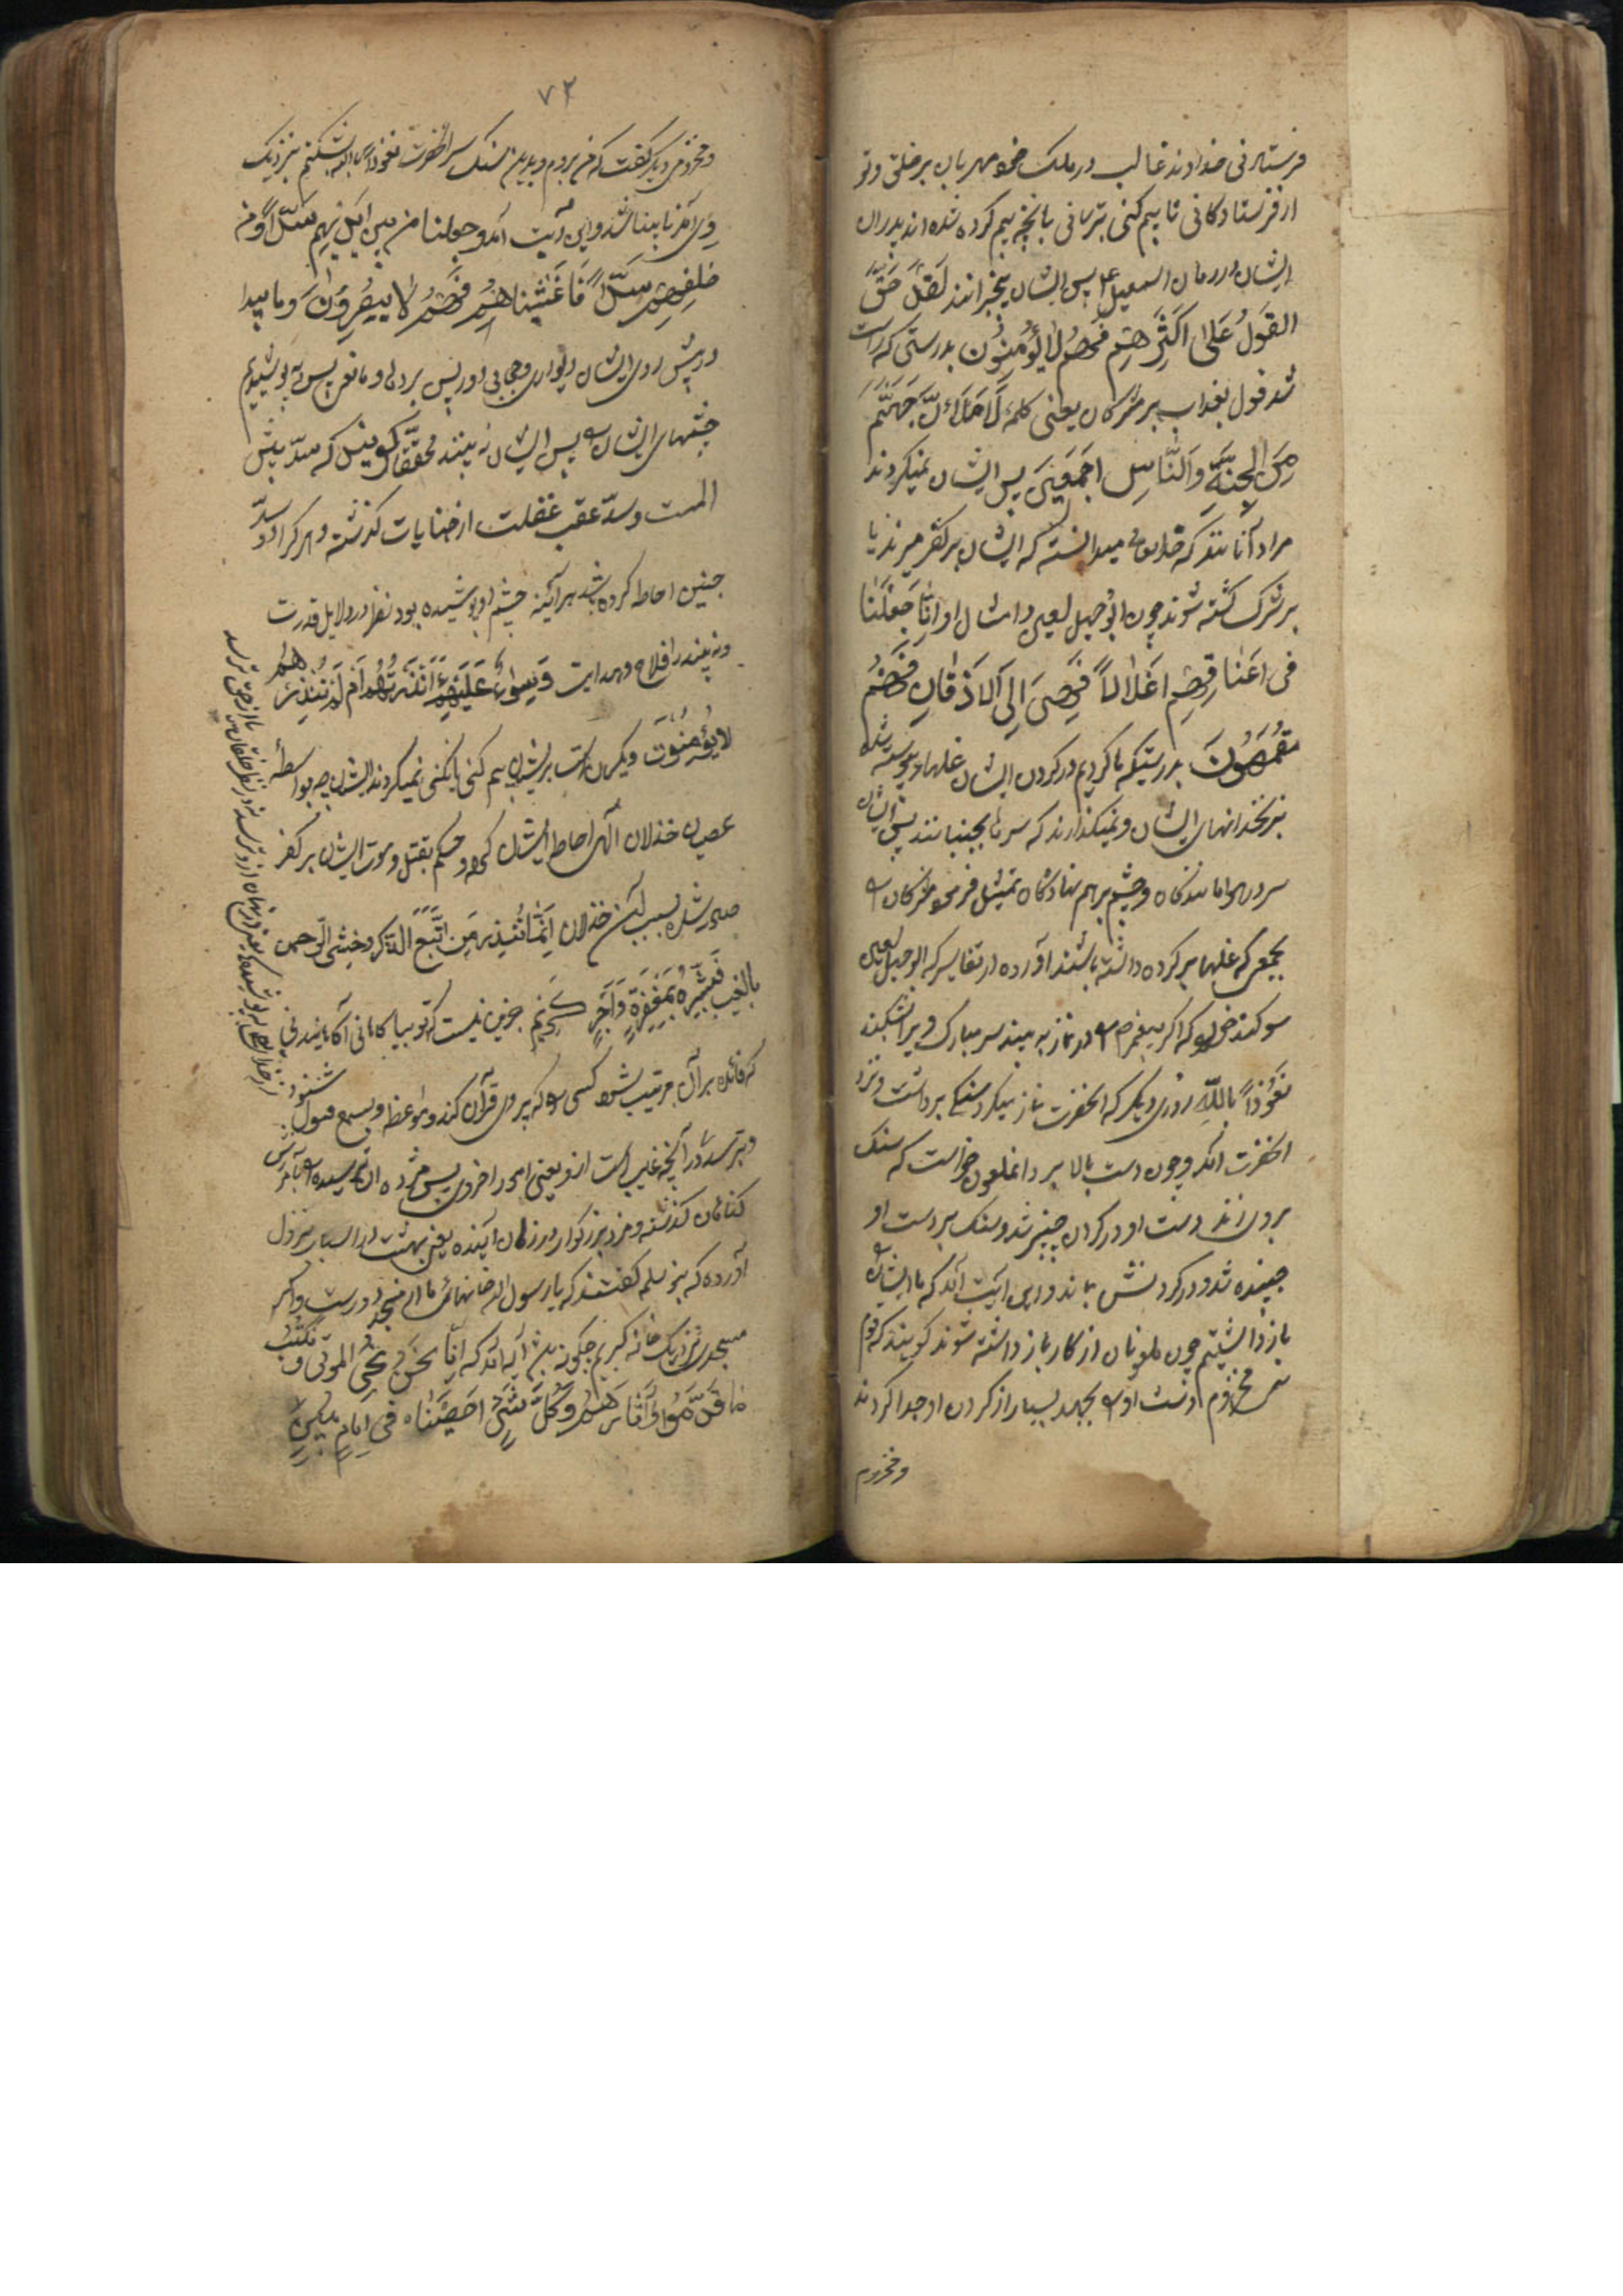 فرستادنی خداوند غالب در ملک خود مهربان بر خلق وتو
از فرستادکانی تا بیم کنی بترسانی بانچه بیم کرده شده اند پدران
ایشان در زمان اسمعیل ع پس ایشان بیخبرانند لَقَدْ حَقَّ
القَوْلُ عَلیٰ اَکْثَرِهِمْ فَهُمْ لا یُؤْمِنُونَ بدرستی که راست
شد قول بعذاب بر مشرکان یعنی کلمهٔ لَاَمْلَاَنَّ جَهَنَّمَ
مِنَ الجِنَّةِ وَالنَّاسِ اَجْمَعینَ پس ایشان نمیکروند
مراد آنانند که خدایتعالی میدانست که ایشان بر کفر میرند یا
بر شرک کشته شوند چون ابوجهل لعین وامثال او اِنّا جَعَلْنَا
فی اَعْناقِهِمْ اَغْلالاً فَهِیَ اِلَی الْاَذْقَانِ فَهُمْ
مُقْمَحُونَ بدرستیکه ما کردیم در کردن ایشان غلها پیوسته شده
بزنخدانهای ایشان ونمیکذارند که سرها بجنبانند پس ایشان
سر در هوا ماندکان وچشم برهم نهادکان تمثیل فرمود مشرکان را
بجمعی که غلها بر کردن داشته باشند آورده در تفاسیر که ابوجهل لعین
سوکند خورد که اکر پیغمبر ص را در نماز به بیند سر مبارک ویرا بشکند
نَعُوذُ بِاللّٰهِ روزی دیکر که انحضرت نماز میکرد سنکی برداشت ونزد
انحضرت امد وچون دست بالا برد انملعون خواست که سنک
بر وی زند دست او در کردن چنبر شد وسنک بر دست او
چسبنده شد ودر کردنش بماند واین ایت آمد که ما ایشان را
باز داشتیم چون ملعونان از کار باز داشته شوند کویند که قوم
بنی مخزوم دست او را بجهد بسیار از کردن او جدا کردند
ومخزوم
۷۲
ومخزومی دیکر کفت که من بروم وبدین سنک سر انحضرت نعوذ بالله بشکنم بنزدیک
وی آمد نابینا شد واین آیت آمد وجعلنا من بین ایدیهم سَدّاً وَمِنْ
خَلْفِهِمْ سَدّاً فَاَغْشَیْناهُمْ فَهُمْ لا یُبْصِرُونَ وما پیدا
در پیش روی ایشان دیواری وحجابی ودر پس پرده ومانعی پس بپوشیدیم
چشمهای ایشان را پس ایشان نه بینند محققان کویند که سدّ پیش
املست وسدّ عقب غفلت از جنایات کذشته وهر کرا دو سدّ
چنین احاطه کرده باشد هر آئینه چشم او پوشیده بود نظر در دلایل قدرت
ونه بیند راه فلاح وهدایت وَسَواءٌ عَلَیْهِمْ ءَاَنْذَرْتَهُمْ اَمْ لَمْ تُنْذِرْهُمْ
لا یُؤْمِنُونَ ویکسان است بر ایشان بیم کنی یا نکنی نمیکروند ایشان چه بواسطهٔ
عصیان خذلان الهی احاطه ایشان کرده وحکم بقتل وموت ایشان بر کفر
صادر شده بسبب آن خذلان اِنَّمَا تُنْذِرُ مَنِ اتَّبَعَ الذِّکْرَ وَخَشِیَ الرَّحمن
بالغیب فَبَشِّرْهُ بِمَغْفِرَةٍ وَاَجْرٍ کَریمٍ جزین نیست که تو بیاکاهانی آکاهانیدنی
که فائده بر آن مرتب شود کسی را که پیروی قرآن کند ومواعظ وی بسمع قبول شنود
وبترسد در آنچه غیب است ازو یعنی امور اخروی پس مژده ده ان ترسیده را بآمرزش
کناهان کذشته ومزد بزرکوار در زمان آینده یعنی بهشت در اسباب نزول
آورده که بنو سلمه کفتند که یا رسول الله خانهای ما از مسجد دورست واکر
مسجد نزدیک خانه کیریم چکونه بود این آیه آمد که اِنّا نَحْنُ نُحْیِ الموتی وَنَکْتُبُ
ما قَدَّمُوا وَآثارَهُمْ وَکُلَّ شَیْءٍ اَحْصَیْناهُ فی اِمامٍ مُبینٍ